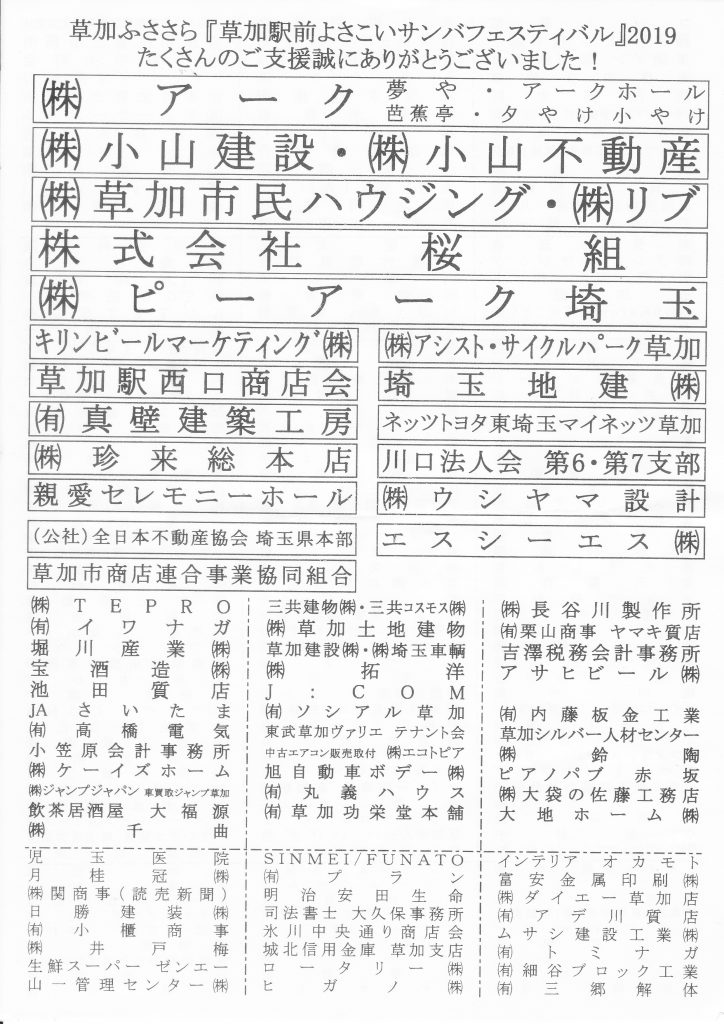 草加ふささら『草加駅前よさこいサンバフェスティバル』2019
たくさんのご支援誠にありがとうございました！
㈱ アーク 夢や・アークホール
芭蕉亭・夕やけ小やけ
㈱小山建設・㈱小山不動産
㈱草加市民ハウジング・㈱リブ
株式会社 桜組
㈱ピーアーク埼玉
キリンビールマーケティング㈱
草加駅西口商店会
㈲真壁建築工房
㈱珍来総本店
親愛セレモニーホール
（公社）全日本不動産協会 埼玉県本部
草加市商店連合事業協同組合
㈱アシスト・サイクルパーク草加
埼玉地建㈱
ネッツトヨタ東埼玉マイネッツ草加
川口法人会 第6・第7支部
㈱ウシヤマ設計
エスシーエス㈱
㈱TEPRO
㈲イワナガ
堀川産業㈱
宝酒造㈱
池田質店
JAさいたま
㈲高橋電気
小笠原会計事務所
㈱ケーイズホーム
㈱ジャンプジャパン 車買取ジャンプ草加
飲茶居酒屋 大福源
㈱千曲
三共建物㈱・三共コスモス㈱
㈱草加土地建物
草加建設㈱・㈱埼玉車輌
㈱拓洋
J:COM
㈲ソシアル草加
東武草加ヴァリエ テナント会
中古エアコン販売取付 ㈱エコトピア
旭自動車ボデー㈱
㈲丸義ハウス
㈲草加功栄堂本舗
㈱長谷川製作所
㈲栗山商事 ヤマキ質店
吉澤税務会計事務所
アサヒビール㈱
㈲内藤板金工業
草加シルバー人材センター
㈱鈴陶
ピアノパブ 赤坂
㈱大袋の佐藤工務店
大地ホーム㈱
児玉医院
月桂冠㈱
㈱関商事(読売新聞)
日勝建装㈱
㈲小櫃商事
㈱井戸梅
生鮮スーパー ゼンエー
山一管理センター㈱
SINMEI/FUNATO
㈲プラン
明治安田生命
司法書士 大久保事務所
氷川中央通り商店会
城北信用金庫 草加支店
ロータリー㈱
ヒガノ㈱
インテリア オカモト
富安金属印刷㈱
㈱ダイエー草加店
㈲アデ川質店
ムサシ建設工業㈱
㈲トミナガ
㈲細谷ブロック工業
㈲三郷解体